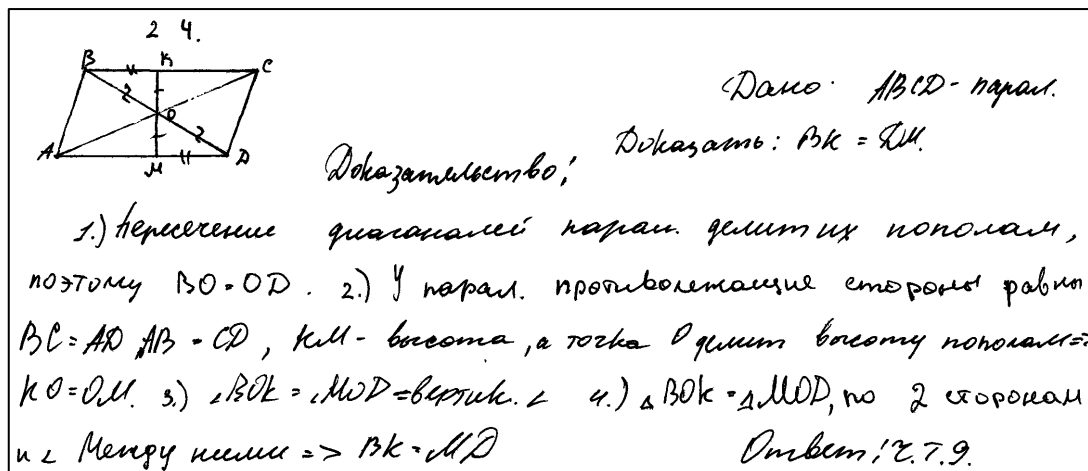 2 4.
B K C
O
A M D
Дано: ABCD - парал.
Доказать: BK = DM.
Доказательство:
1.) Пересечение диаганалей парал. делит их пополам,
поэтому BO = OD. 2.) У парал. противолежащие стороны равны
BC = AD, AB = CD, KM - высота, а точка O делит высоту пополам =>
KO = OM. 3.) ∠BOK = ∠MOD = вертик. ∠ 4.) △BOK = △MOD, по 2 сторонам
и ∠ Между ними => BK = MD
Ответ: Ч.Т.Д.